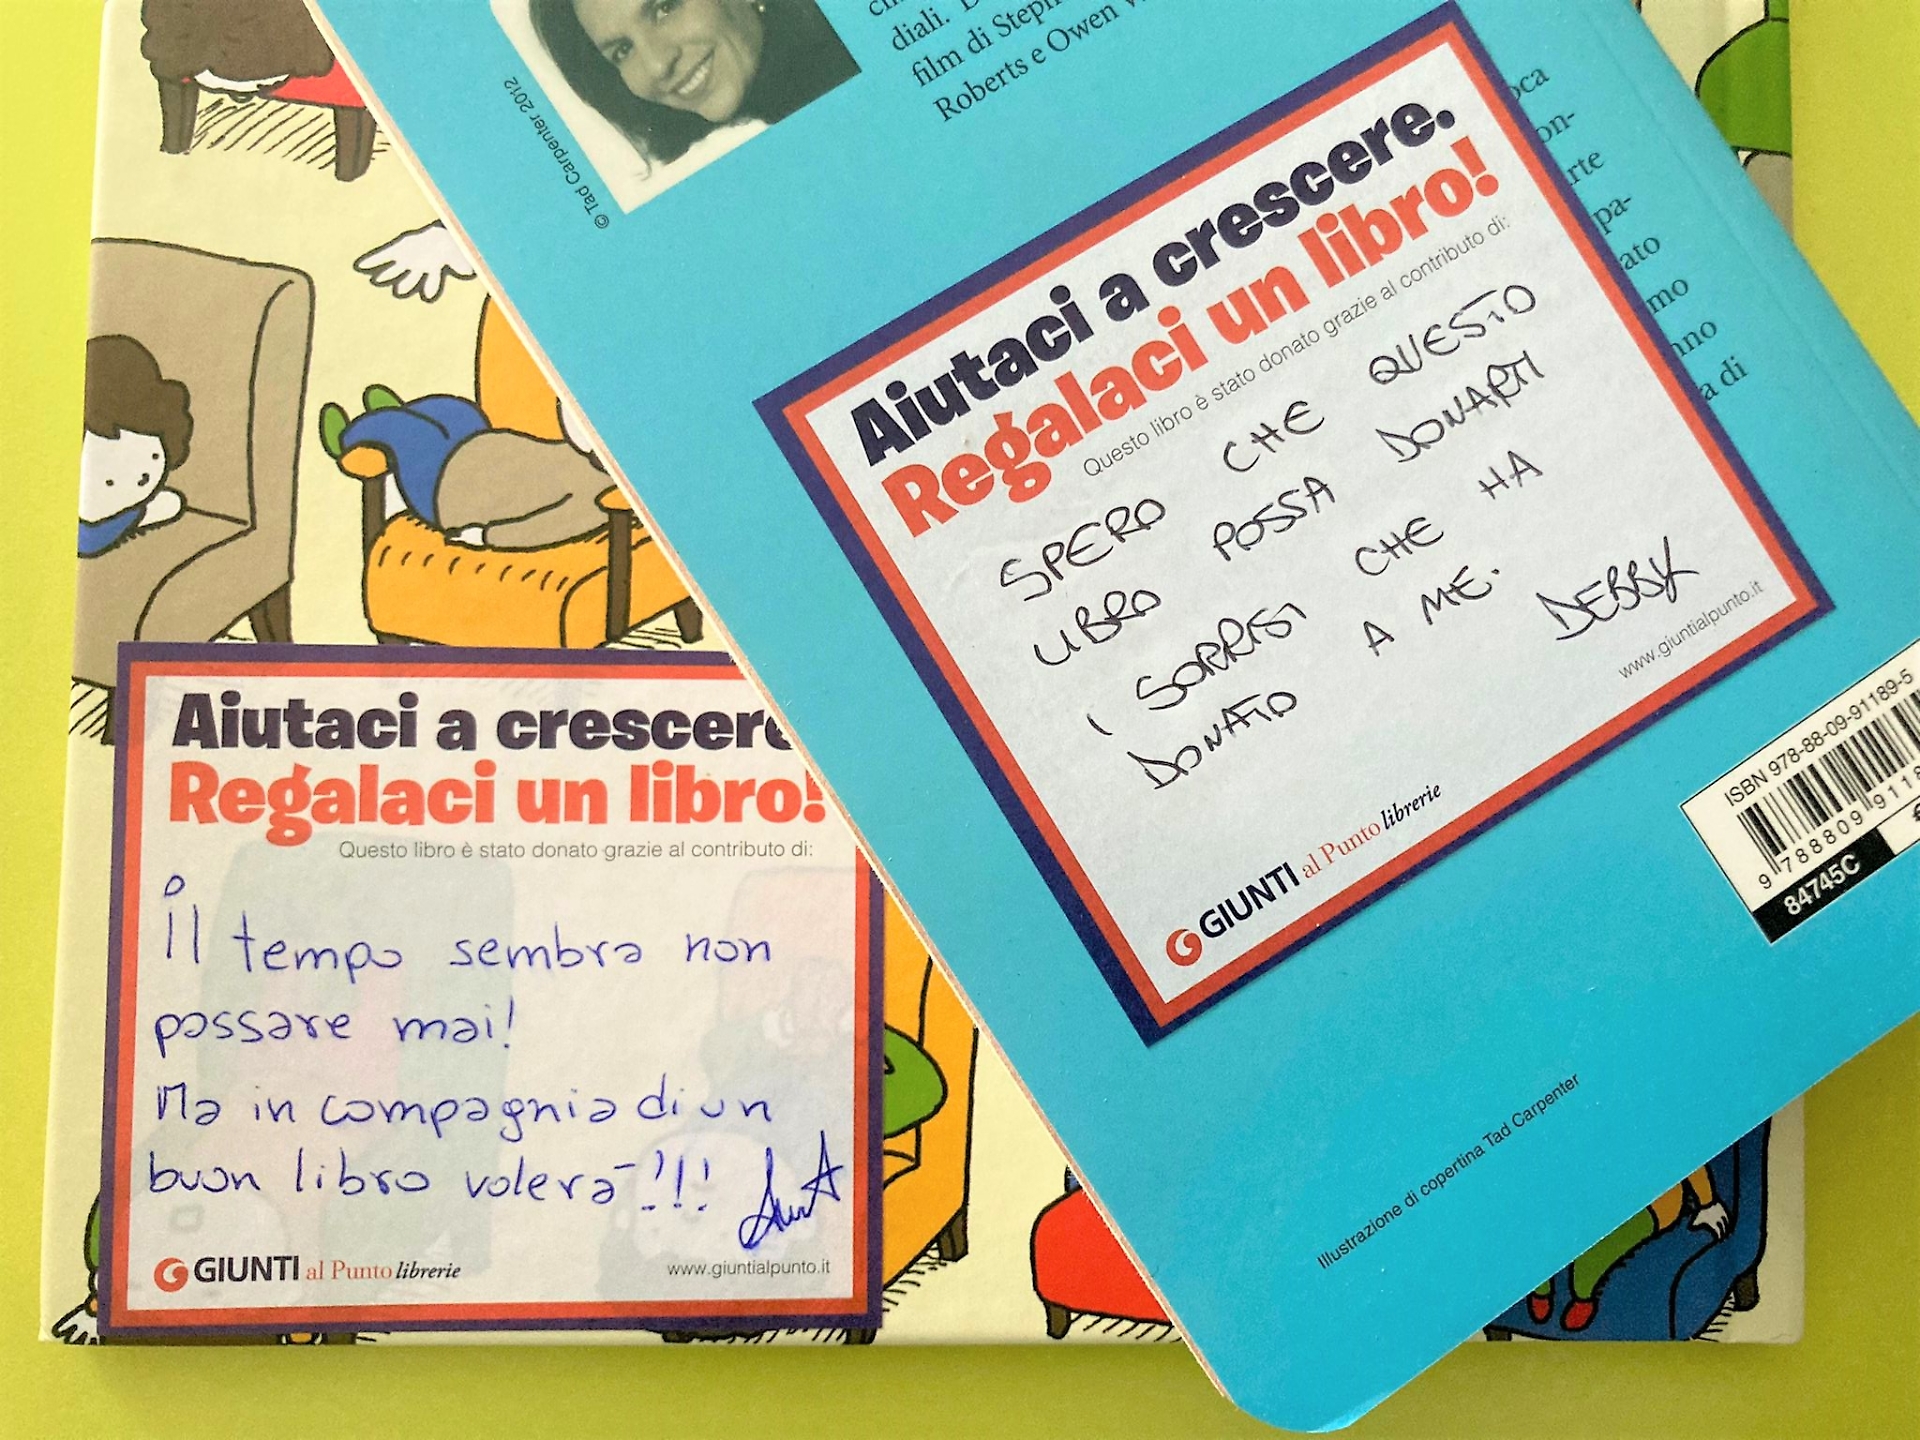 © Tad Carpenter 2012
diali.
film di Steph
Roberts e Owen
oca
on-
arte
pa-
ato
mo
nno
a di
Aiutaci a crescere.
Regalaci un libro!
Questo libro è stato donato grazie al contributo di:
SPERO CHE QUESTO
LIBRO POSSA DONARTI
I SORRISI CHE HA
DONATO A ME.
DEBBY
www.giuntialpunto.it
GIUNTI al Punto librerie
ISBN 978-88-09-91189-5
9 788809 9118
84745C
Illustrazione di copertina Tad Carpenter
Aiutaci a crescere
Regalaci un libro!
Questo libro è stato donato grazie al contributo di:
il tempo sembra non
passare mai!
Ma in compagnia di un
buon libro volerà!!!
GIUNTI al Punto librerie
www.giuntialpunto.it